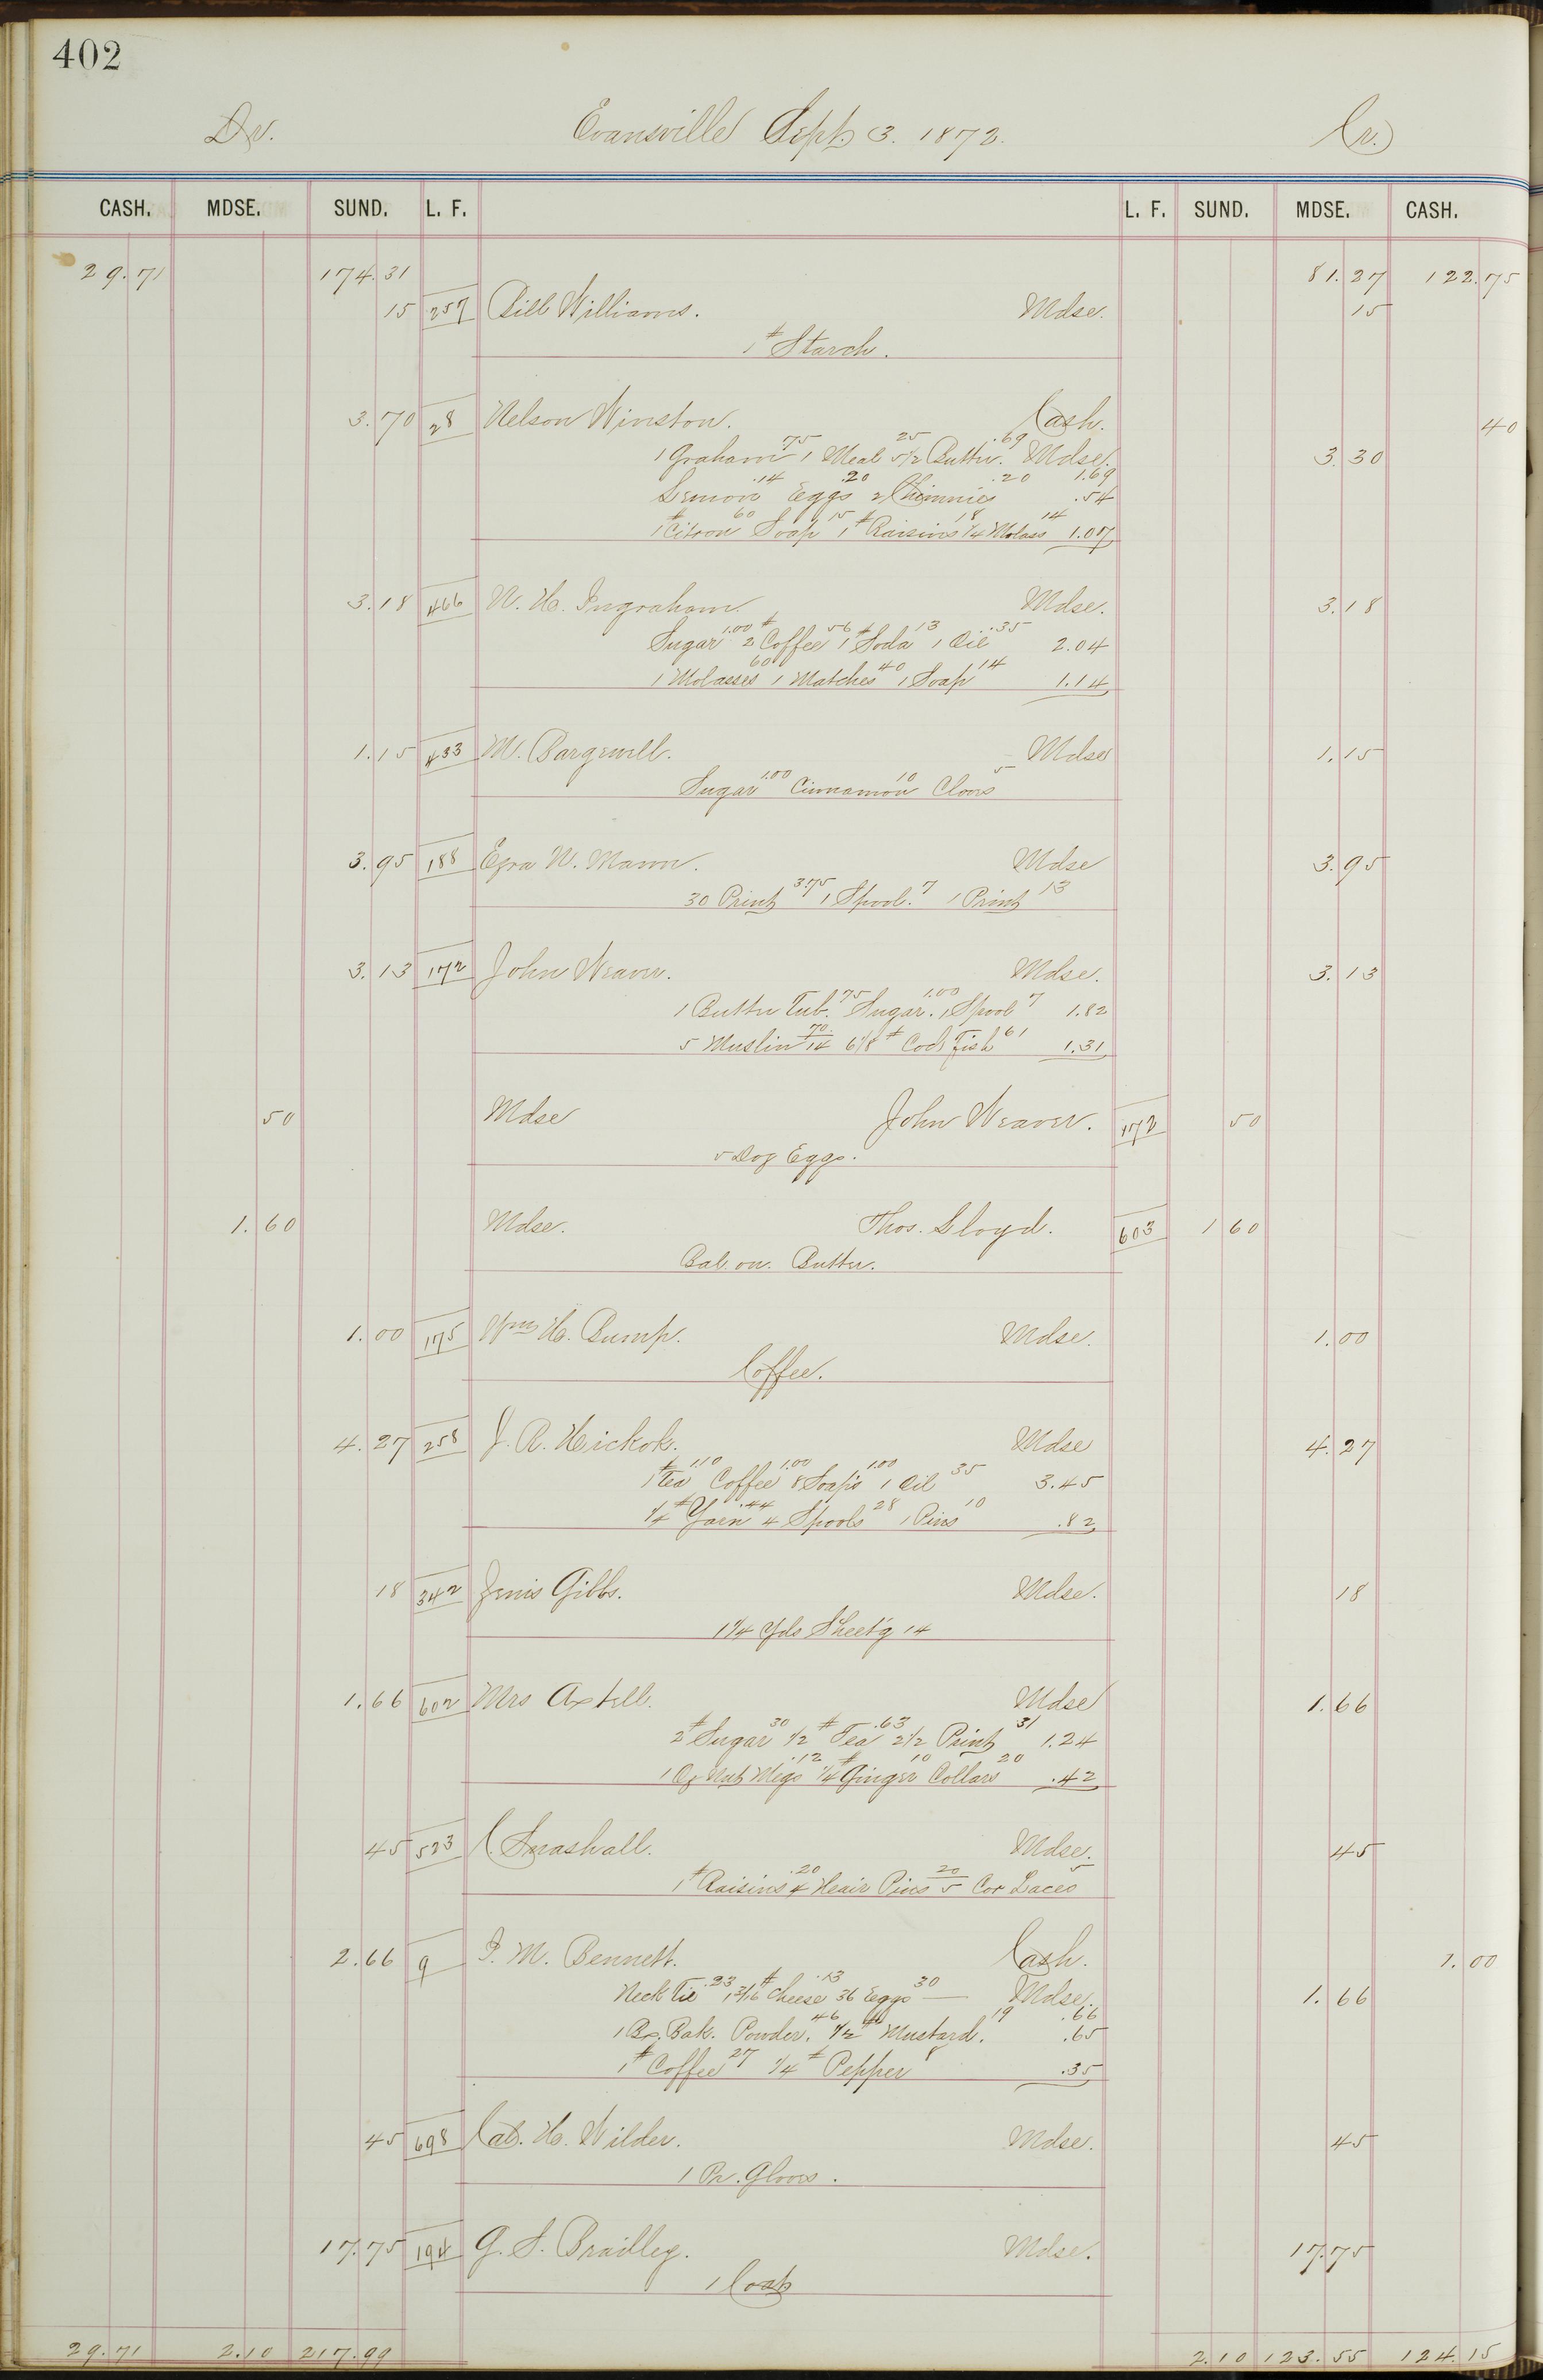 402
Dr. Evansville Sept. 3. 1872. Cr.
CASH. MDSE. SUND. L. F. L. F. SUND. MDSE. CASH.
29.71 174.31 81.27 122.75
15 257 Bill Williams. Mdse. 15
1# Starch.
3.70 28 Nelson Winston. Cash. 40
1 Graham 75 1 Meal 25 5 1/2 Butter. .69 Mdse. 3.30
1.69
Lemon .14 Eggs .20 2 Chimnies .20 .54
1# Citron 60 Soap 15 1# Raisins 18 1/4 Molass 14 1.07
3.18 466 W. H. Ingraham. Mdse. 3.18
Sugar 1.00 2# Coffee 56 1# Soda 13 1 Oil .35 2.04
1 Molasses 60 1 Matches 40 1 Soap 14 1.14
1.15 433 M. Bargewell. Mdse 1.15
Sugar 1.00 Cinnamon 10 Cloves 5
3.95 188 Ezra W. Mann. Mdse 3.95
30 Print 3.75 1 Spool. 7 1 Print 13
3.13 172 John Weaver. Mdse. 3.13
1 Butter Tub. 75 Sugar. 1.00 1 Spool 7 1.82
5 Muslin 70/14 6 1/8# Cod Fish 61 1.31
50 Mdse John Weaver. 172 50
5 Doz Eggs.
1.60 Mdse. Thos. Lloyd. 603 1 60
Bal. on. Butter.
1.00 175 Wm H. Bump. Mdse. 1.00
Coffee.
4.27 258 J. R. Hickok. Mdse 4.27
1# Tea 1.10 Coffee 1.00 8 Soaps 1.00 1 Oil 35 3.45
1/4# Yarn .44 4 Spools 28 1 Pins 10 .82
18 342 Jenis Gibbs. Mdse. 18
1 1/4 Yds Sheet'g 14
1.66 602 Mrs Axtell. Mdse 1.66
2# Sugar 30 1/2# Tea .63 2 1/2 Print 31 1.24
1 Oz Nut Megs .12 1/4# Ginger 10 Collars 20 .42
45 523 C. Smashall. Mdse. 45
1# Raisins .20 4 Heair Pins 20/5 Cor Laces 5
2.66 9 I. M. Bennett. Cash. 1.00
Neck Tie .23 1 3/16# Cheese .13 36 Eggs 30 — Mdse. 1.66
.66
1 Bx. Bak. Powder. 46 1/2# Mustard. 19 .65
1# Coffee 27 1/4# Pepper 8 .35
45 698 Cal. H. Wilder. Mdse. 45
1 Pr. Gloves.
17.75 194 G. S. Bradley. Mdse. 17.75
1 Coat
29.71 2.10 217.99 2.10 123.55 124.15